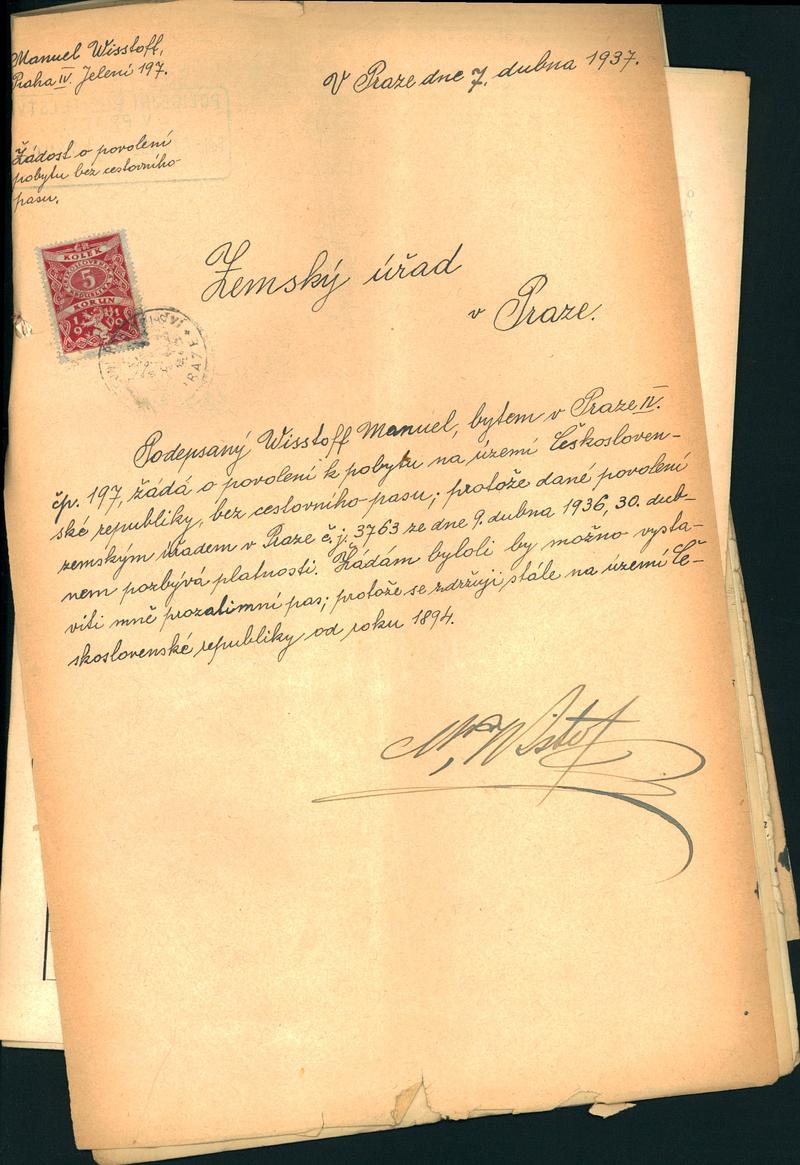 Manuel Wisstoff,
Praha IV. Jelení 197.
V Praze dne 7. dubna 1937.
Žádost o povolení
pobytu bez cestovního
pasu.
ČR
KOLEK
5
KORUN
Zemský úřad
v Praze.
Podepsaný Wisstoff Manuel, bytem v Praze IV.
čp. 197, žádá o povolení k pobytu na území Českosloven-
ské republiky, bez cestovního pasu; protože dané povolení
zemským úřadem v Praze č.j. 3763 ze dne 9. dubna 1936, 30. dub-
nem pozbývá platnosti. Žádám byloli by možno vysta-
viti mně prozatimní pas; protože se zdržuji stále na území Če-
skoslovenské republiky od roku 1894.